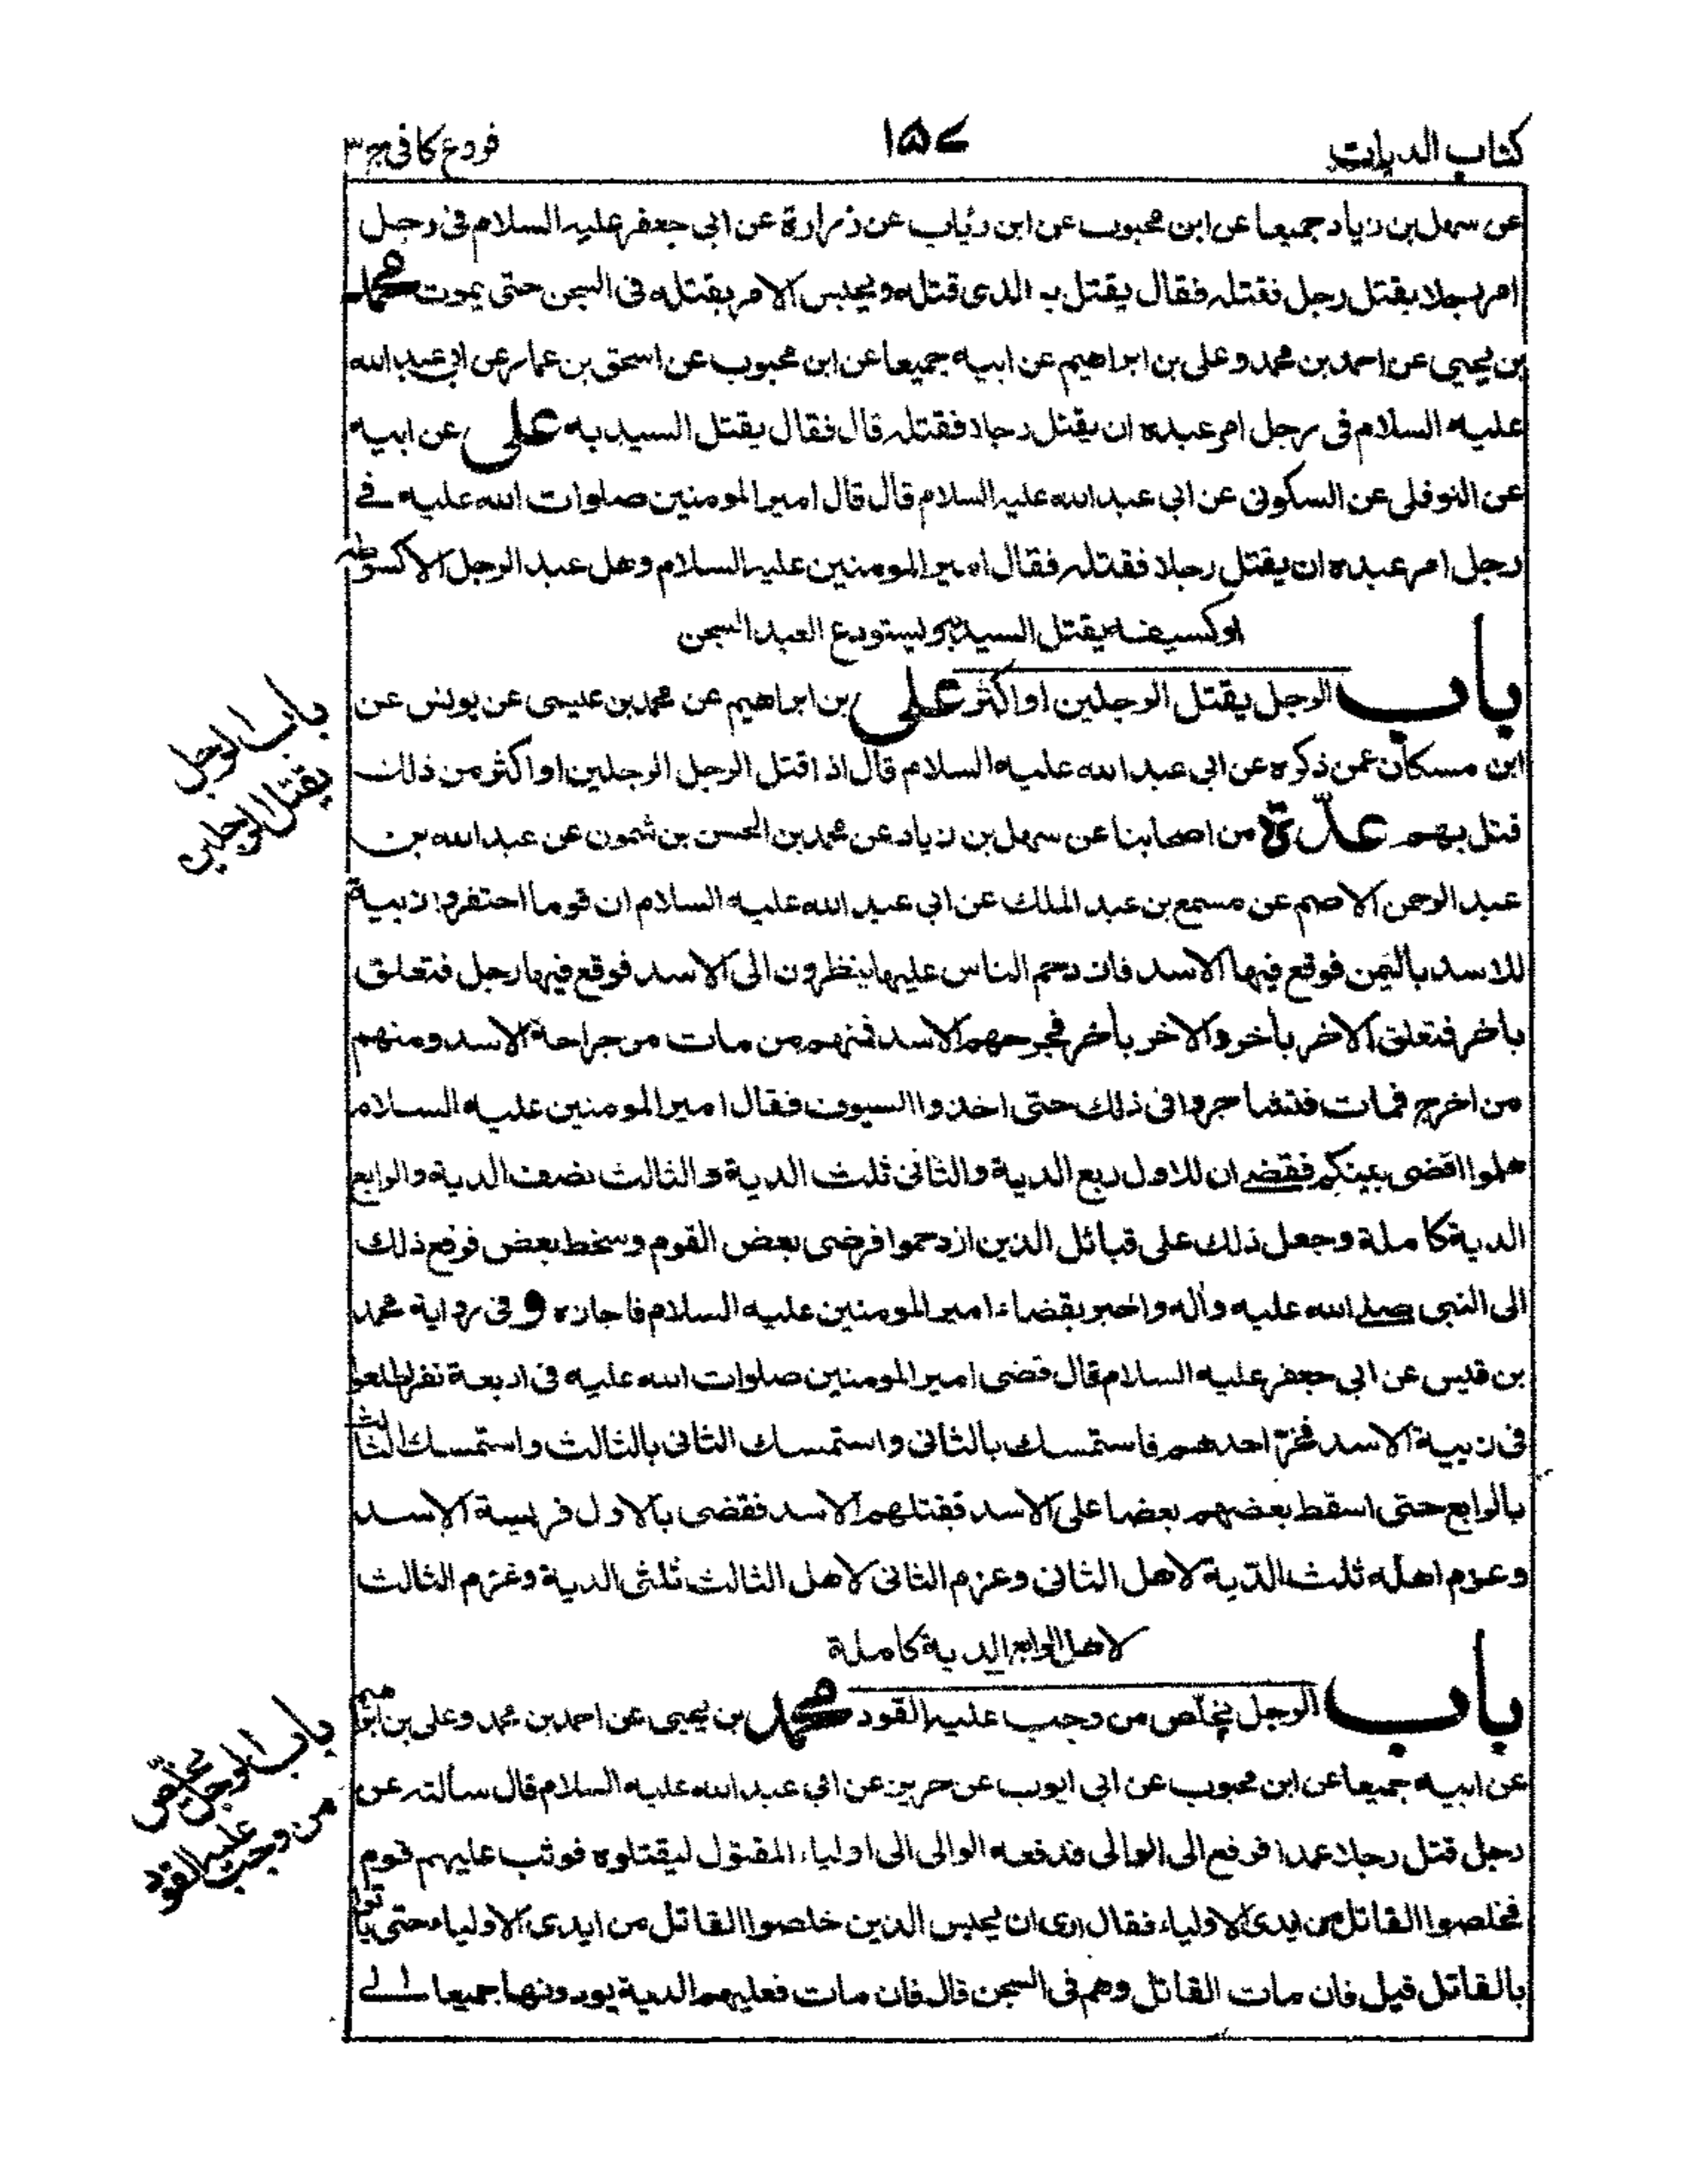 كتاب الديات
١٥٧
فروع كافى ج ٣
عن سهل بن زياد جميعا عن ابن محبوب عن ابن رئاب عن زرارة عن ابى جعفر عليه السلام فى رجل
امر رجلا بقتل رجل فقتله فقال يقتل به الذى قتله ويحبس الامر بقتله فى السجن حتى يموت محمد
بن يحيى عن احمد بن محمد وعلى بن ابراهيم عن ابيه جميعا عن ابن محبوب عن اسحق بن عمار عن ابى عبد الله
عليه السلام فى رجل امر عبده ان يقتل رجلا فقتله قال فقال يقتل السيد به على عن ابيه
عن النوفلى عن السكونى عن ابى عبد الله عليه السلام قال قال امير المومنين صلوات الله عليه فى
رجل امر عبده ان يقتل رجلا فقتله فقال امير المومنين عليه السلام وهل عبد الرجل الا كسوطه
او كسيفه يقتل السيد به ويستودع العبد السجن
باب الرجل يقتل الرجلين او اكثر على بن ابراهيم عن محمد بن عيسى عن يونس عن
ابن مسكان عمن ذكره عن ابى عبد الله عليه السلام قال اذا قتل الرجل الرجلين او اكثر من ذلك
قتل بهم عدّة من اصحابنا عن سهل بن زياد عن محمد بن الحسن بن شمون عن عبد الله بن
عبد الرحمن الاصم عن مسمع بن عبد الملك عن ابى عبد الله عليه السلام ان قوما احتفروا زبية
للاسد باليمن فوقع فيها الاسد فازدحم الناس عليها ينظرون الى الاسد فوقع فيها رجل فتعلق
باخر فتعلق الاخر بأخر والاخر بأخر فجرحهم الاسد فمنهم من مات من جراحة الاسد ومنهم
من اخرج فمات فتشاجروا فى ذلك حتى اخذوا السيوف فقال امير المومنين عليه السلام
هلموا اقضى بينكم فقضى ان للاول ربع الدية والثانى ثلث الدية والثالث نصف الدية والرابع
الدية كاملة وجعل ذلك على قبائل الذين ازدحموا فرضى بعض القوم وسخط بعض فرفع ذلك
الى النبى صلى الله عليه وأله واخبر بقضاء امير المومنين عليه السلام فاجازه و فى رواية محمد
بن قيس عن ابى جعفر عليه السلام قال قضى امير المومنين صلوات الله عليه فى اربعة نفر اطلعوا
فى زبية الاسد فخرّ احدهم فاستمسك بالثانى واستمسك الثانى بالثالث واستمسك الثالث
بالرابع حتى اسقط بعضهم بعضا على الاسد فقتلهم الاسد فقضى بالاول فريسة الاسد
وغرم اهله ثلث الدّية لاهل الثانى وغرم الثانى لاهل الثالث ثلثى الدية وغرم الثالث
لاهل الرابع الدية كاملة
باب الرجل يخلّص من وجب عليه القود محمد بن يحيى عن احمد بن محمد وعلى بن ابراهيم
عن ابيه جميعا عن ابن محبوب عن ابى ايوب عن حريز عن ابى عبد الله عليه السلام قال سألته عن
رجل قتل رجلا عمدا فرفع الى الوالى فدفعه الوالى الى اولياء المقتول ليقتلوه فوثب عليهم قوم
فخلصوا القاتل من ايدى الاولياء فقال ارى ان يحبس الذين خلصوا القاتل من ايدى الاولياء حتى ياتوا
بالقاتل قيل فان مات القاتل وهم فى السجن قال فان مات فعليهم الدية يودونها جميعا الى
باب الرجل
يقتل الرجلين
باب الرجل يخلّص
من وجب
عليه القود